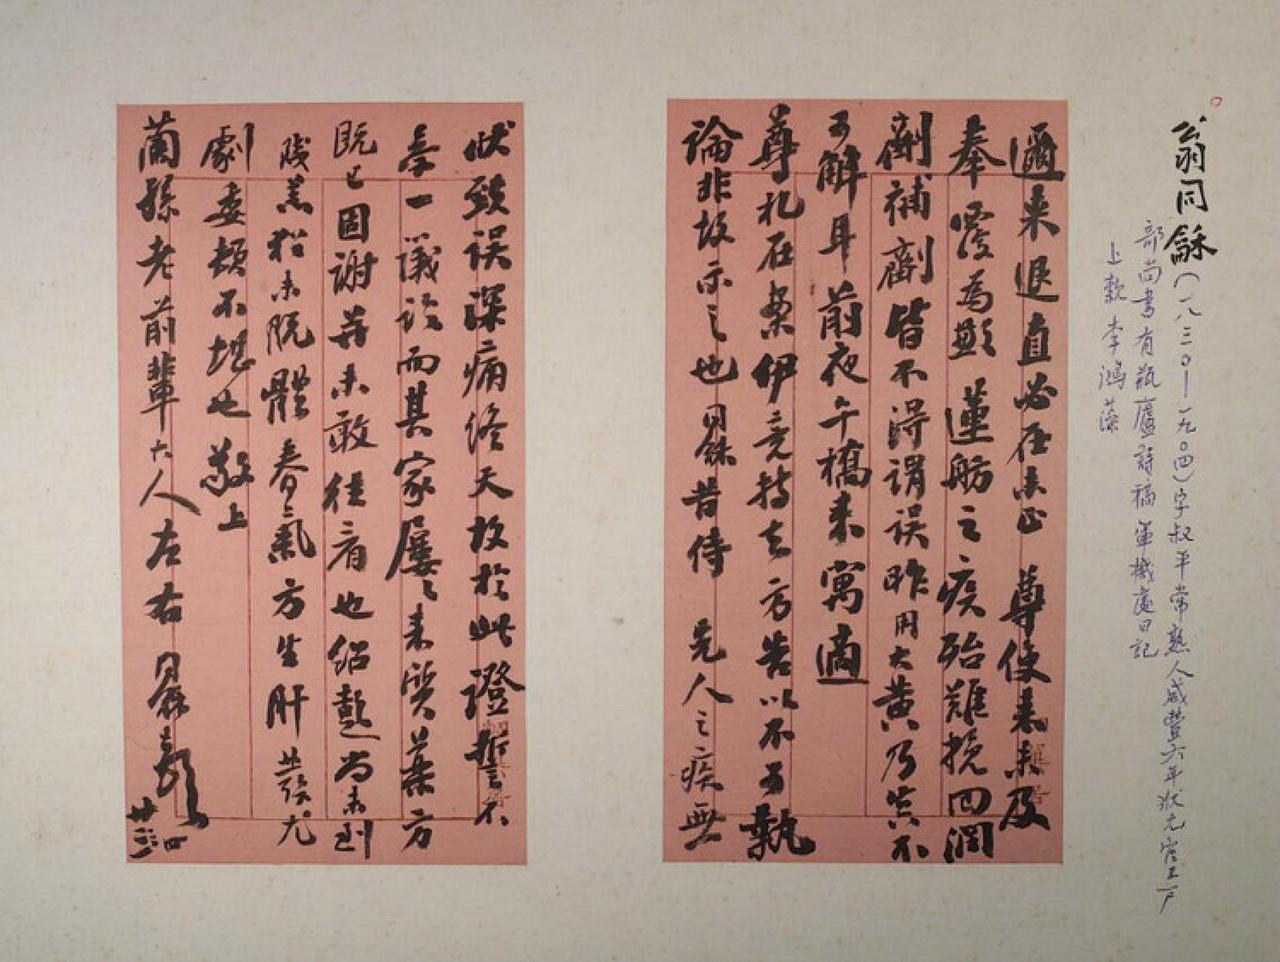 翁同龢(一八三〇—一九〇四)字叔平常熟人咸豐六年狀元官工戶
部尚書有瓶廬詩稿軍機處日記
上款李鴻藻
邇来退直必在未正 尊使来未及
奉覆為歉 蓮舫之疾殆難挽回潤
劑補劑皆不得謂誤昨用大黃乃真不
可解耳前夜午橋来寓適
尊札在案伊竟持去方告以不可執
論非故示之也同龢昔侍 先人之疾無
狀致誤深痛終天故於此證誓不
參一議論而其家屢之来質藥方
既已固謝并未敢往看也紹彭尚未到
賤恙稍未脫體春氣方生肝益發尤
劇委頓不堪也敬上
蘭孫老前輩大人左右 同龢頓